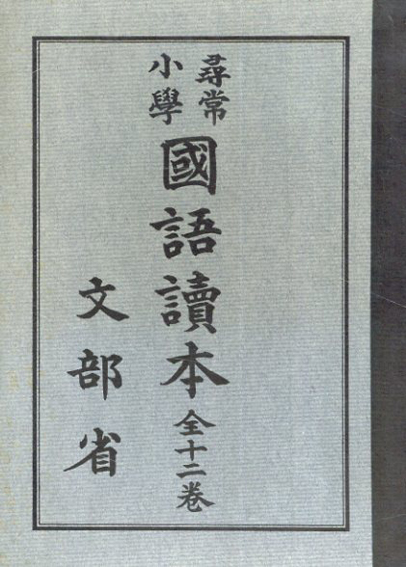 尋常
小學
國語讀本全十二卷
文部省